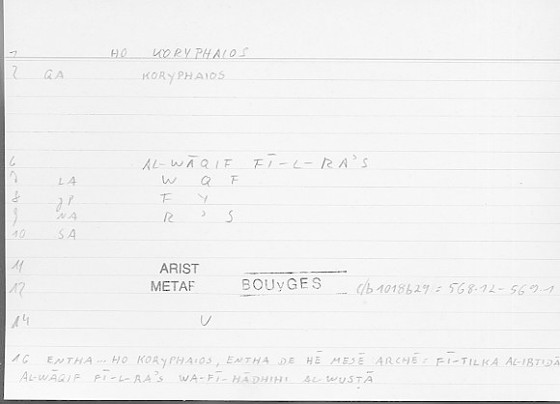 1 HO KORYPHAIOS
2 GA KORYPHAIOS
6 AL-WĀQIF FĪ-L-RAʾS
7 LA W Q F
8 JP F Y
9 NA R ʾ S
10 SA
11 ARIST
12 METAF BOUYGES c/b 1018b29 = 568.12-569.1
14 U
16 ENTHA ... HO KORYPHAIOS, ENTHA DE HĒ MESĒ ARCHĒ = FĪ-TILKA AL-IBTIDĀ
AL-WĀQIF FĪ-L-RAʾS WA-FĪ-HĀDHIHI AL-WUSṬĀ